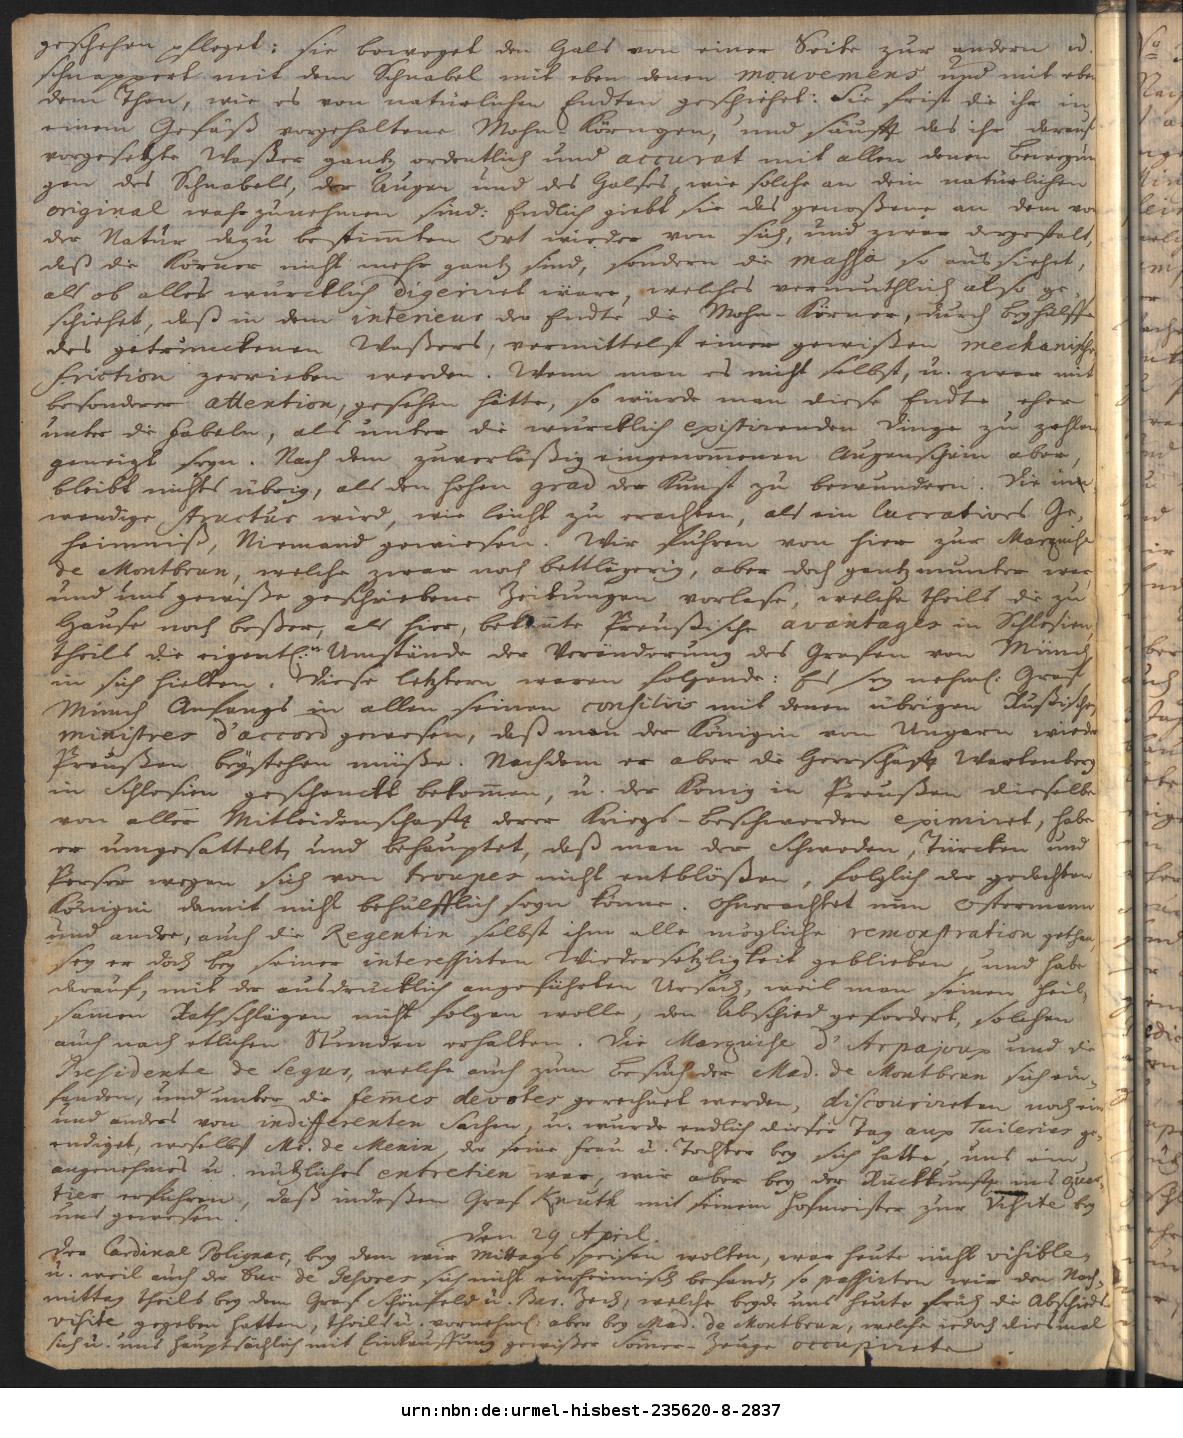 geschehen pfleget: sie beweget den Hals von einer Seite zur andern u.
schnappert mit dem Schnabel mit eben denen mouvemens und mit eben
dem Thon, wie es von natürlichen Endten geschiehet: Sie frist die ihr in
einem Gefäß vorgehaltene Mohn-Körngen, und säufft das ihr darauf
vorgesetzte Waßer gantz ordentlich und accurat mit allen denen Bewegun
gen des Schnabels, der Augen und des Halses, wie solche an dem natürlichen
original wahrzunehmen sind: Endlich giebt sie das genoßene an dem von
der Natur dazu bestimten Ort wieder von sich, und zwar dergestalt,
daß die Körner nicht mehr gantz sind, sondern die massa so aussiehet,
als ob alles würcklich digeriret wäre, welches vermuthlich also ge-
schiehet, daß in dem interieur der Endte die Mohn-Körner, durch Beyhülffe
des getrunckenen Waßers, vermittelst einer gewißen mechanische
friction zerrieben werden. Wenn man es nicht selbst, u. zwar mit
besonderer attention, gesehen hätte, so würde man diese Endte eher
unter die Fabeln, als unter die würcklich existirenden Dinge zu zehlen
geneigt seyn. Nach dem zuverläßig eingenommenen Augenschein aber,
bleibt nichts übrig, als den hohen grad der Kunst zu bewundern. Die inn
wendige structur wird, wie leicht zu erachten, als ein lucratives Ge-
heimniß, Niemand gewiesen. Wir fuhren von hier zur Marquise
de Montbrun, welche zwar noch bettlägerig, aber doch gantz munter war,
und uns gewiße geschriebene Zeitungen vorlase, welche theils die zu
Hause noch beßer, als hier, bekannte Preußische avantages in Schlesien,
theils die eigentl:en Umstände der Veränderung des Grafen von Münch
in sich hielten. Diese letztern waren folgende: Es sey nehml: Graf
Münch Anfangs in allen seinen consiliis mit denen übrigen Rußischen
ministres d'accord gewesen, daß man der Königin von Ungarn wieder
Preußen beystehen müße. Nachdem er aber die Herrschafft Wartenberg
in Schlesien geschenckt bekomen, u. der König in Preußen dieselbe
von aller Mitleidenschafft derer Kriegs-Beschwerden eximiret, habe
er umgesattelt, und behauptet, daß man der Schweden, Türcken und
Perser wegen sich von troupes nicht entblößen, folglich der gedachten
Königin damit nicht behülfflich seyn könne. Ohnerachtet nun Ostermann
und andre, auch die Regentin selbst ihm alle mögliche remonstration gethan,
sey er doch bey seiner interessirten Wiedersetzligkeit geblieben, und habe
darauf, mit der ausdrücklich angeführten Ursach, weil man seinen heil-
samen Rathschlägen nicht folgen wolle, den Abschied gefordert, solchen
auch nach etlichen Stunden erhalten. Die Marquise d'Arpajoux und die
Presidente de Segur, welche auch zum Besuch der Mad. de Montbrun sich ein-
fanden, und unter die femes devotes gerechnet werden, discourirten noch ein
und anders von indifferenten Sachen, u. wurde endlich dieser Tag aux Tuileries ge-
endiget, woselbst Mr. de Menin, der seine Frau u. Tochter bey sich hatte, uns ein
angenehmes u. nützliches entretien war, wir aber bey der Rückkunfft ins Quar-
tier erfuhren, daß indeßen Graf Knuth mit seinem Hofmeister zur Visite bey
uns gewesen.
den 29 April.
Der Cardinal Polignac, bey dem wir Mittags speisen wolten, war heute nicht visible,
u. weil auch der Duc de Gesvres sich nicht einheimisch befand, so passirten wir den Nach-
mittag theils bey dem Graf Schönfeld u. Bar. Zech, welche beyde uns heute früh die Abschieds-
visite gegeben hatten, theils u. vornehml: aber bey Mad. de Montbrun, welche jedoch diesmal
sich u. uns hauptsächlich mit Einkauffung gewißer Sommer-Zeuge occupirte.
urn:nbn:de:urmel-hisbest-235620-8-2837